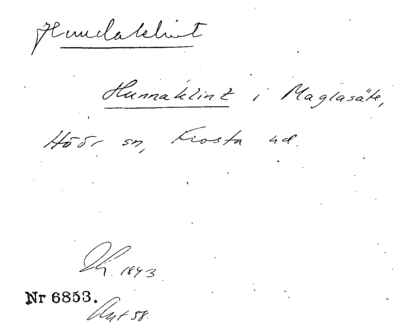 Hundaklint
Hunnaklint i Maglasäte,
Höör sn, Frosta hd.
1843.
Nr 6853.